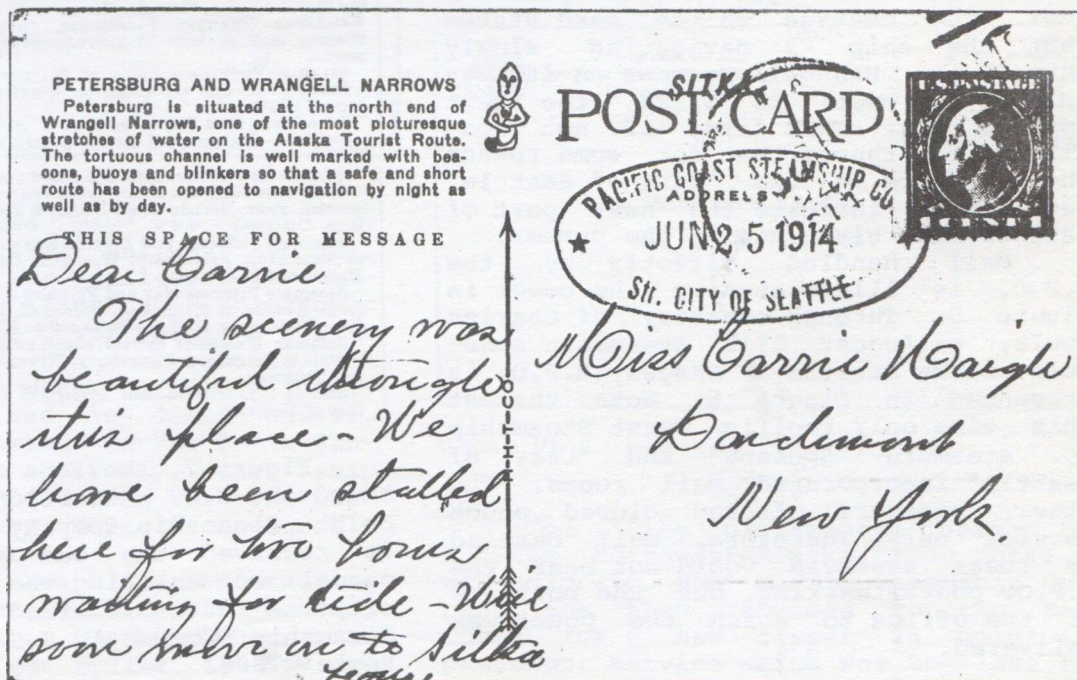 PETERSBURG AND WRANGELL NARROWS
Petersburg is situated at the north end of
Wrangell Narrows, one of the most picturesque
stretches of water on the Alaska Tourist Route.
The tortuous channel is well marked with bea-
cons, buoys and blinkers so that a safe and short
route has been opened to navigation by night as
well as by day.
THIS SPACE FOR MESSAGE
Dear Carrie
The scenery was
beautiful through
this place - We
have been stalled
here for two hours
waiting for tide - Will
soon move on to Sitka
SITKA
POST CARD
PACIFIC COAST STEAMSHIP CO.
JUN 25 1914
Str. CITY OF SEATTLE
Miss Carrie Haigh
Larchmont
New York.